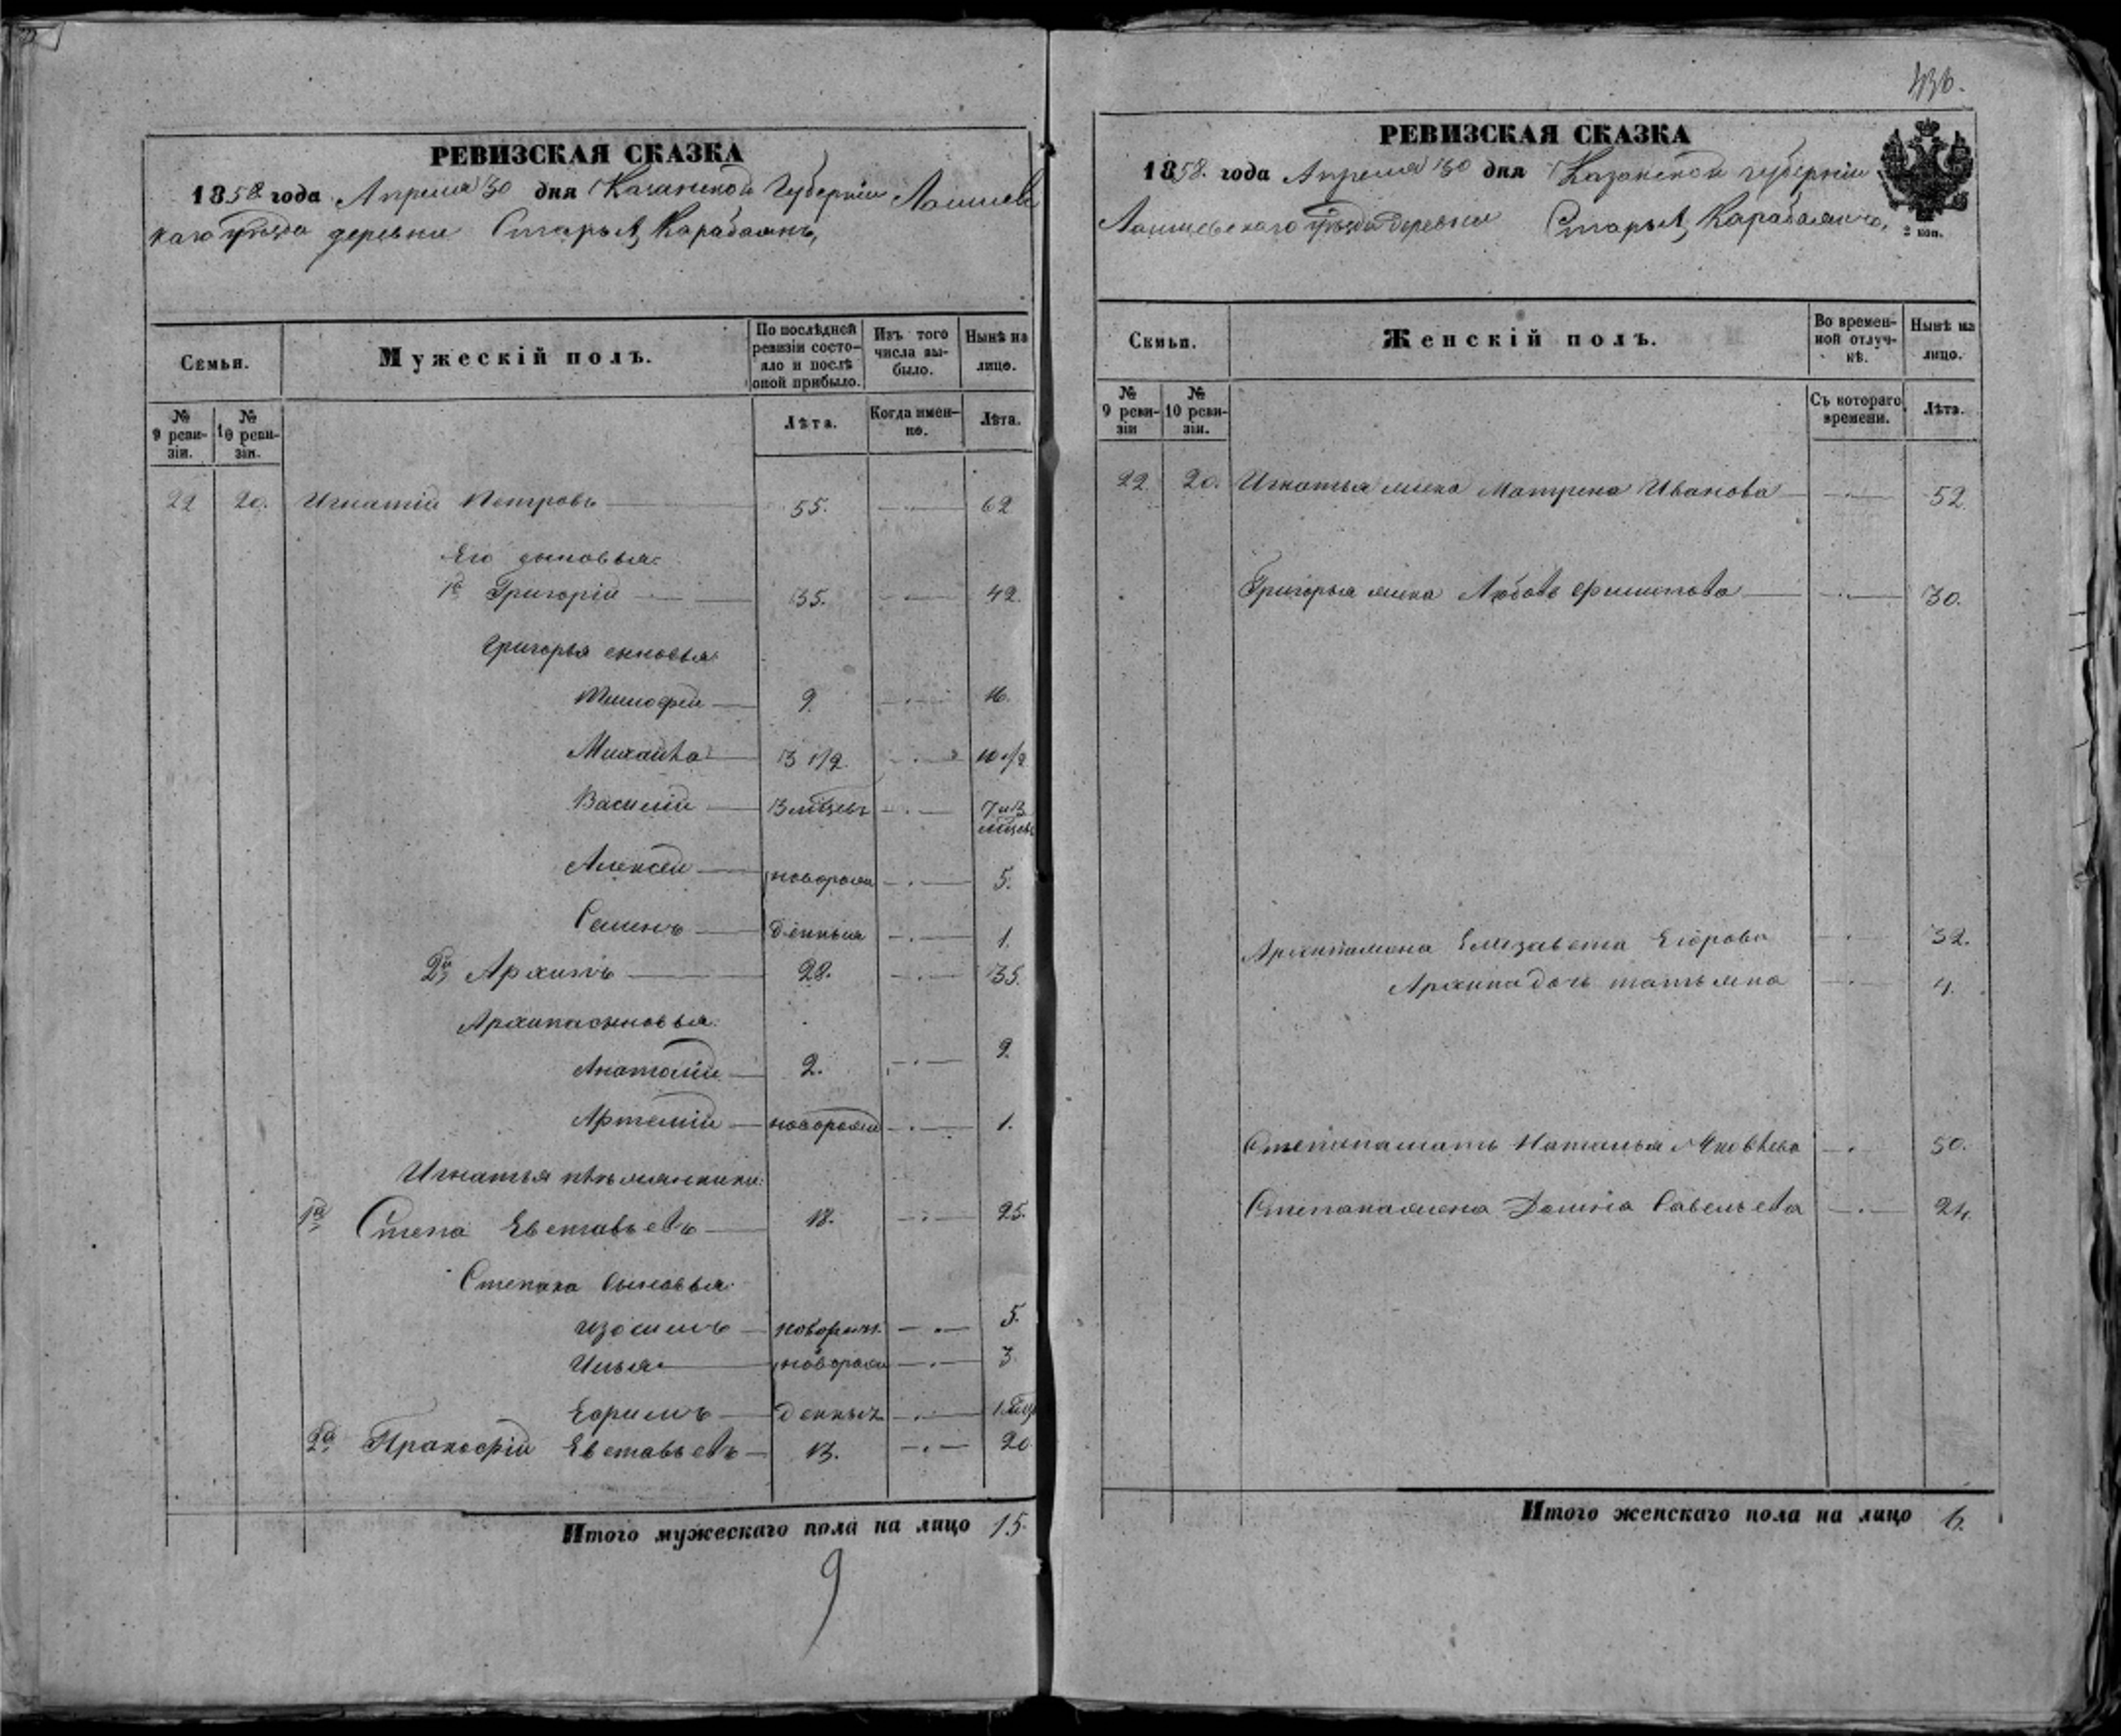 РЕВИЗСКАЯ СКАЗКА
1858 года Апреля 30 дня Казанской Губернiи Лаишев
каго уѣзда деревни Старыхъ Карабаянъ,
Семьи.
Мужескiй полъ.
По послѣдней ревизiи состояло и послѣ оной прибыло.
Изъ того числа выбыло.
Нынѣ на лицо.
№ 9 ревизiи.
№ 10 ревизiи.
Лѣта.
Когда именно.
Лѣта.
22 20. Игнатiй Петровъ 55. 62
Его сыновья:
1й Григорiй 35. 42.
Григорья сыновья:
Тимофей 9. 16.
Михайла 3 1/2. 10 1/2
Василiй 3 мѣсцевъ 7 и 3 мѣсцев
Алексей новорож 5.
Семенъ денныя 1.
2й Архипъ 28. 35.
Архипа сыновья:
Анатолiй 2. 9.
Артемiй новорожд 1.
Игнатья племянники:
1й Степа Евставьевъ 18. 25.
Степана сыновья:
Изосимъ новорожд. 5.
Илья новорож 3.
Ефримъ денных
2й Пракофiй Евставьевъ 13. 20
Итого мужескаго пола на лицо 15.
9
436.
РЕВИЗСКАЯ СКАЗКА
1858. года Апреля 30 дня Казанской губернiи
Лаишевскаго уѣзда деревни Старыхъ Карабаянъ.
2 коп.
Семьи.
Женскiй полъ.
Во временной отлучкѣ.
Нынѣ на лицо.
№ 9 ревизiи
№ 10 ревизiи.
Съ котораго времени.
Лѣта.
22. 20. Игнатья жена Матрена Иванова 52.
Григорья жена Любовь Филипова 30.
Архипа жена Елизавета Егорова 32.
Архипа дочь татьяна 4.
Степана мать Наталья Яковлева 50.
Степана жена Домна Савельева 24.
Итого женскаго пола на лицо 6.